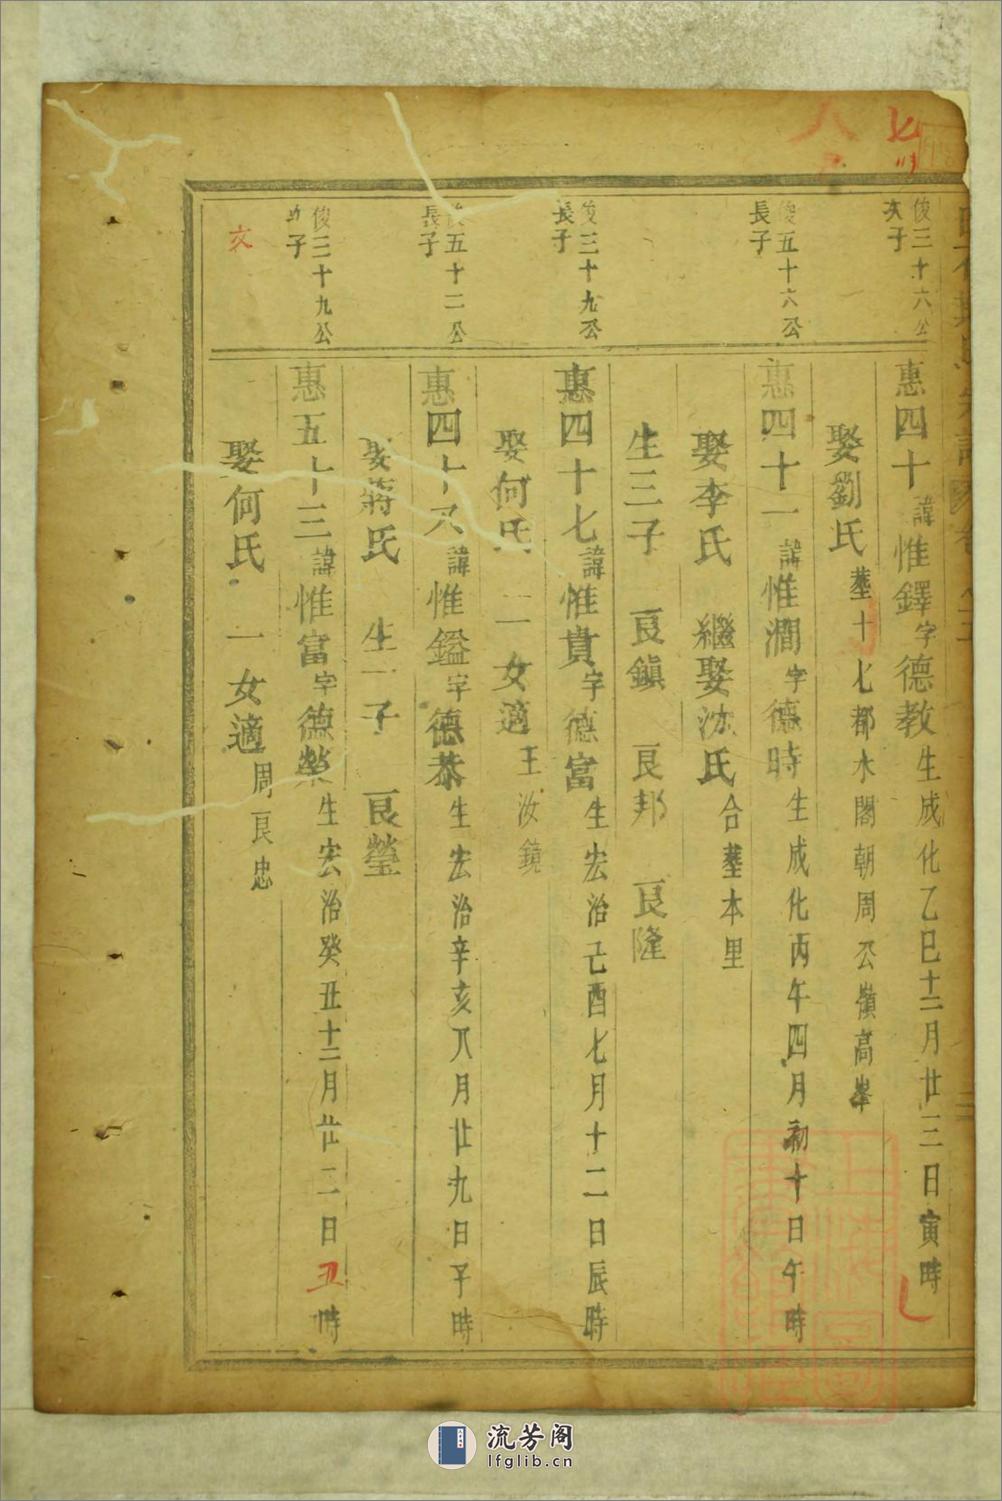 俊三十六公
次子
惠四十諱惟鐸字德教生成化乙巳十二月廿三日寅時
娶劉氏 塟十七都水閣朝周公嶺高峯
俊五十六公
長子
惠四十一諱惟澗字德時生成化丙午四月初十日午時
娶李氏 繼娶沈氏合塟本里
生三子 良鎮 良邦 良隆
俊三十九公
長子
惠四十七諱惟貴字德富生宏治己酉七月十二日辰時
娶何氏 二女適王汝鏡
俊五十二公
長子
惠四十八諱惟鎰字德恭生宏治辛亥八月廿九日子時
娶蔣氏 生一子 良瑩
俊三十九公
次子
惠五十三諱惟富字德榮生宏治癸丑十二月廿二日丑時
娶何氏 一女適周良忠
流芳阁
lfglib.cn